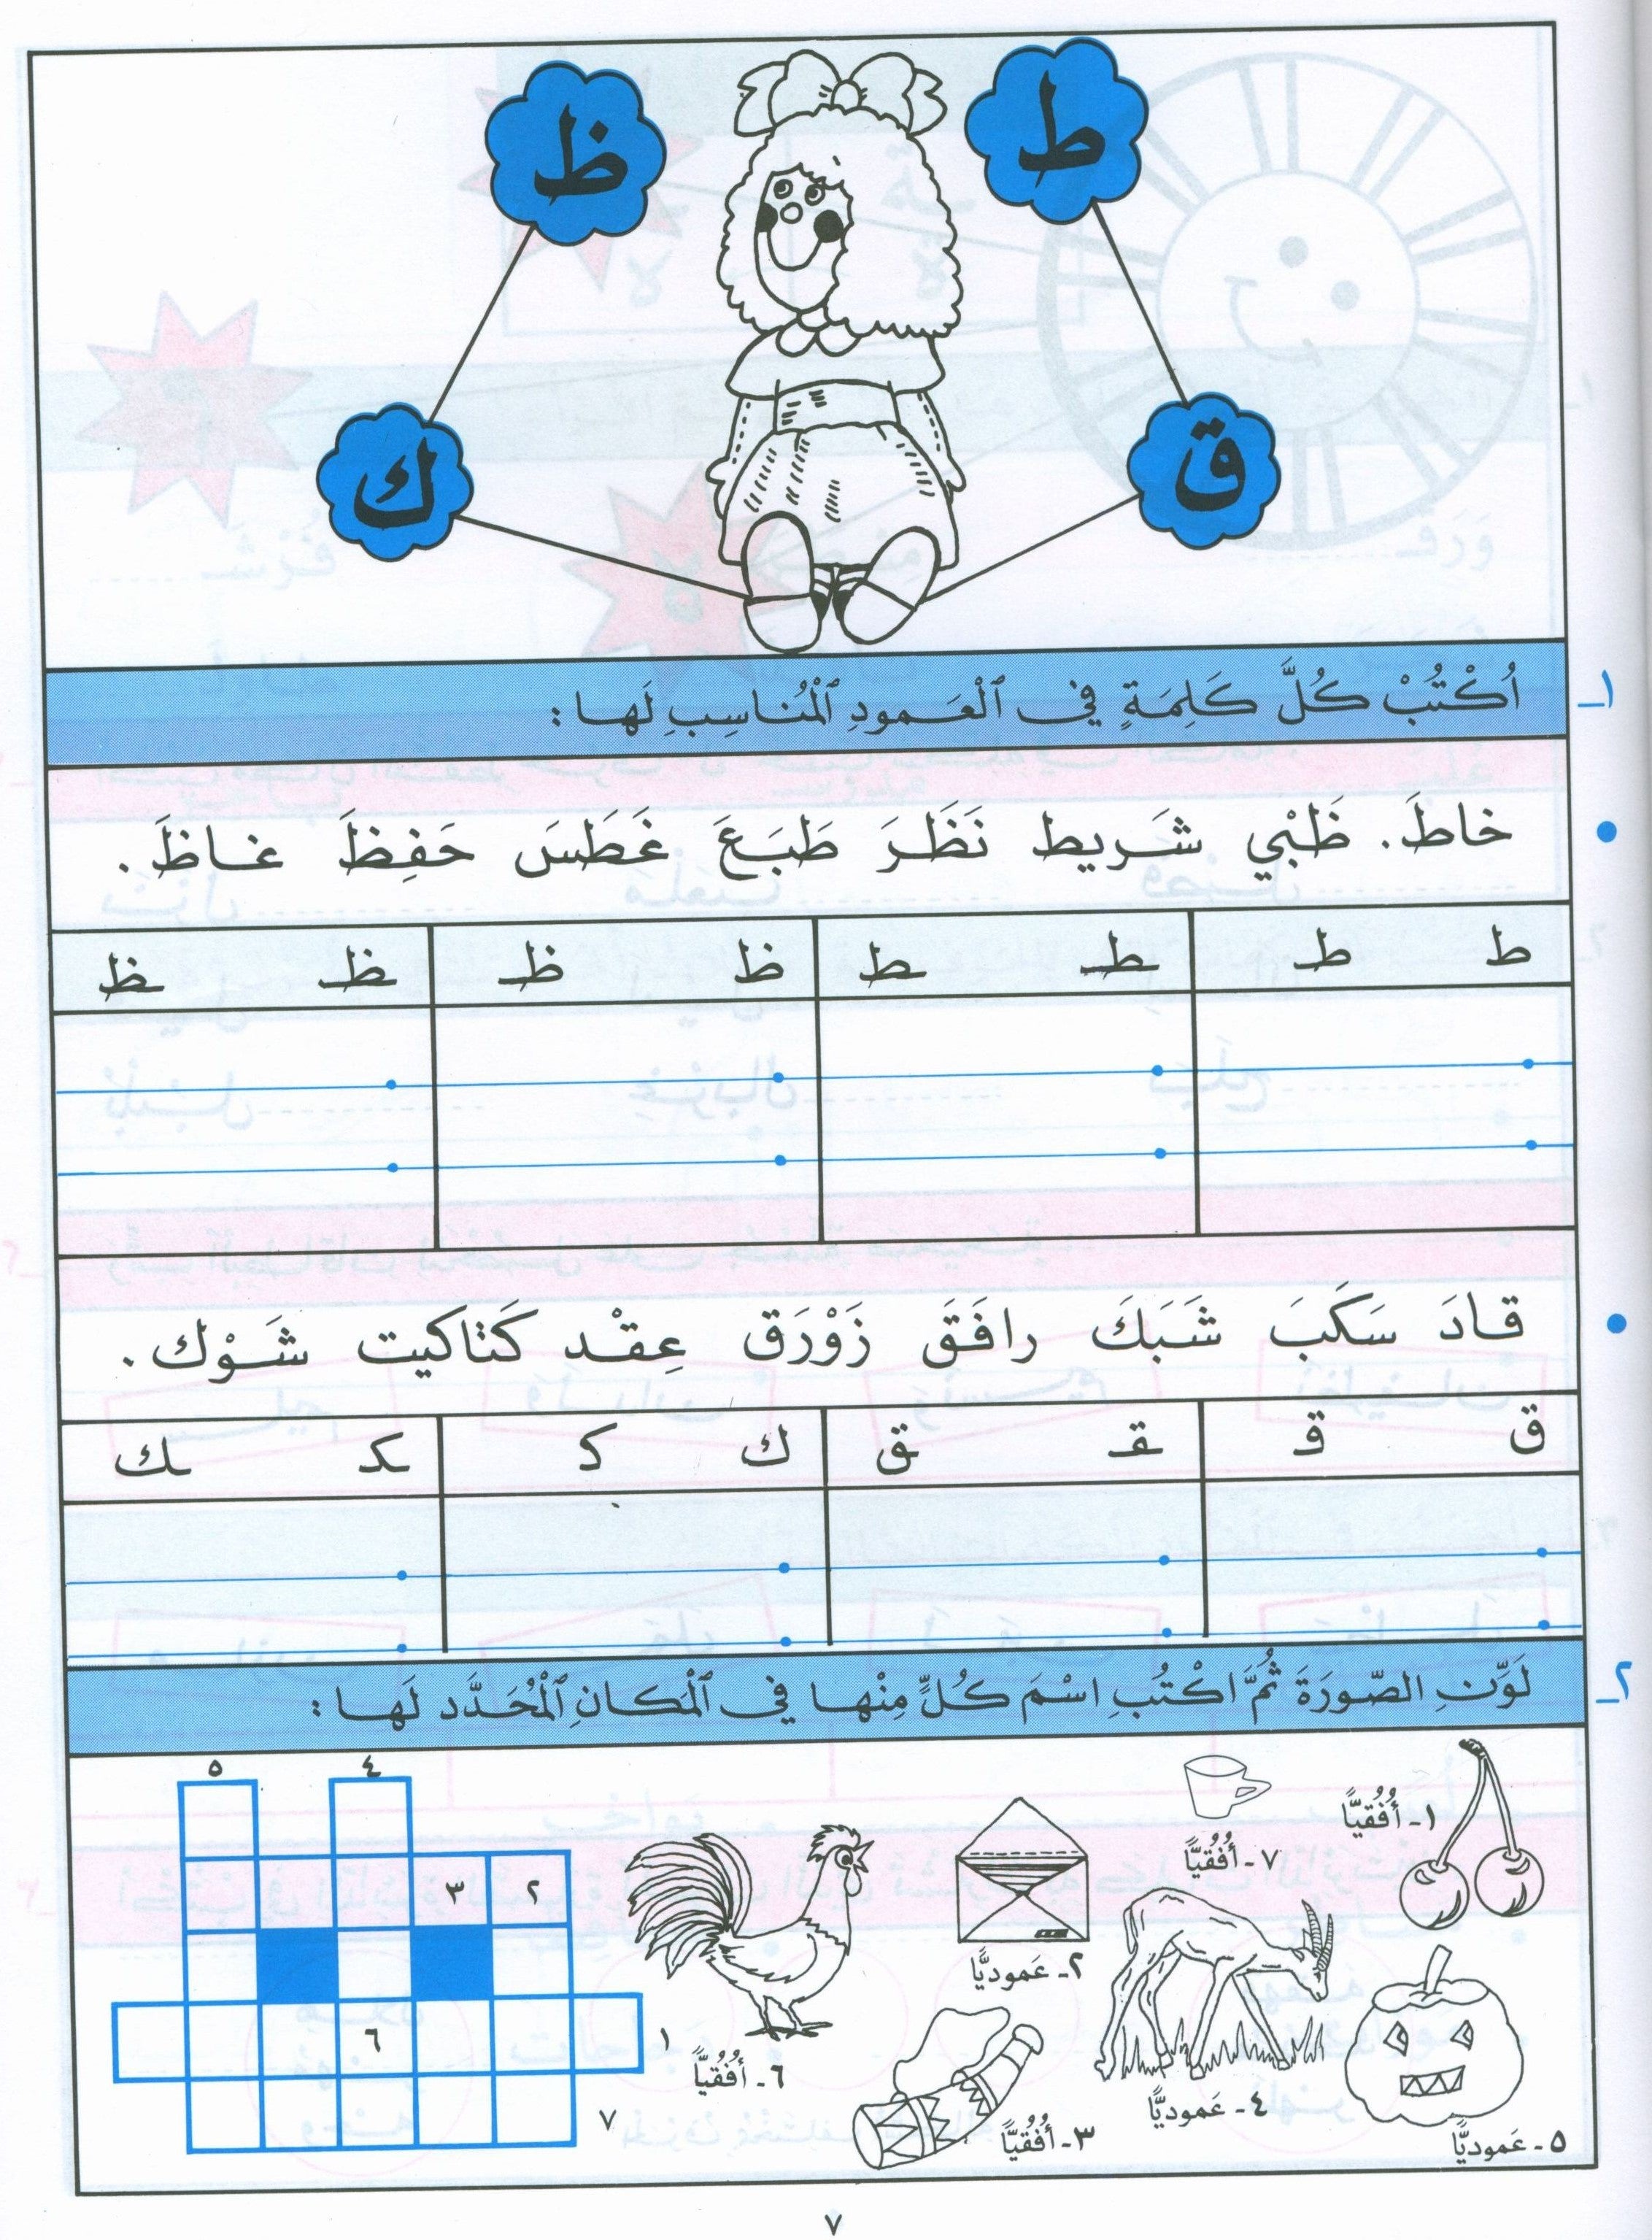 ظ ط
ك ق
١ـ اُكْتُبْ كُلَّ كَلِمَةٍ في ٱلْعَمودِ ٱلْمُناسِبِ لَها :
• خاطَ. ظَبْي شَريط نَظَرَ طَبَعَ غَطَسَ حَفِظَ غاظَ .
ط طـ ـطـ ـط ظ ظـ ـظـ ـظ
• قادَ سَكَبَ شَبَكَ رافَقَ زَوْرَق عِقْد كَتاكيت شَوْك .
ق قـ ـقـ ـق ك كـ ـكـ ـك
٢ـ لَوِّنِ الصّورَةَ ثُمَّ اكْتُبِ اسْمَ كُلٍّ مِنْها في ٱلْمَكانِ ٱلْمُحَدَّد لَها :
١ـ أُفُقيًّا
٧ـ أُفُقيًّا
٢ـ عَموديًّا
٦ـ أُفُقيًّا
٤ـ عَموديًّا
٣ـ أُفُقيًّا
٥ـ عَموديًّا
٤ ٥
٢ ٣
١ ٦
٧
٧